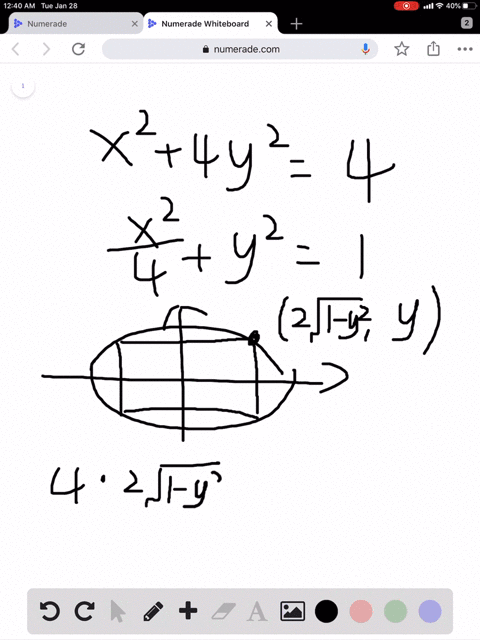 12:40 AM Tue Jan 28 40%
Numerade Numerade Whiteboard 2
numerade.com
1
x²+4y²= 4
x²/4 + y² = 1
(2√1-y², y)
4 · 2√1-y²
A